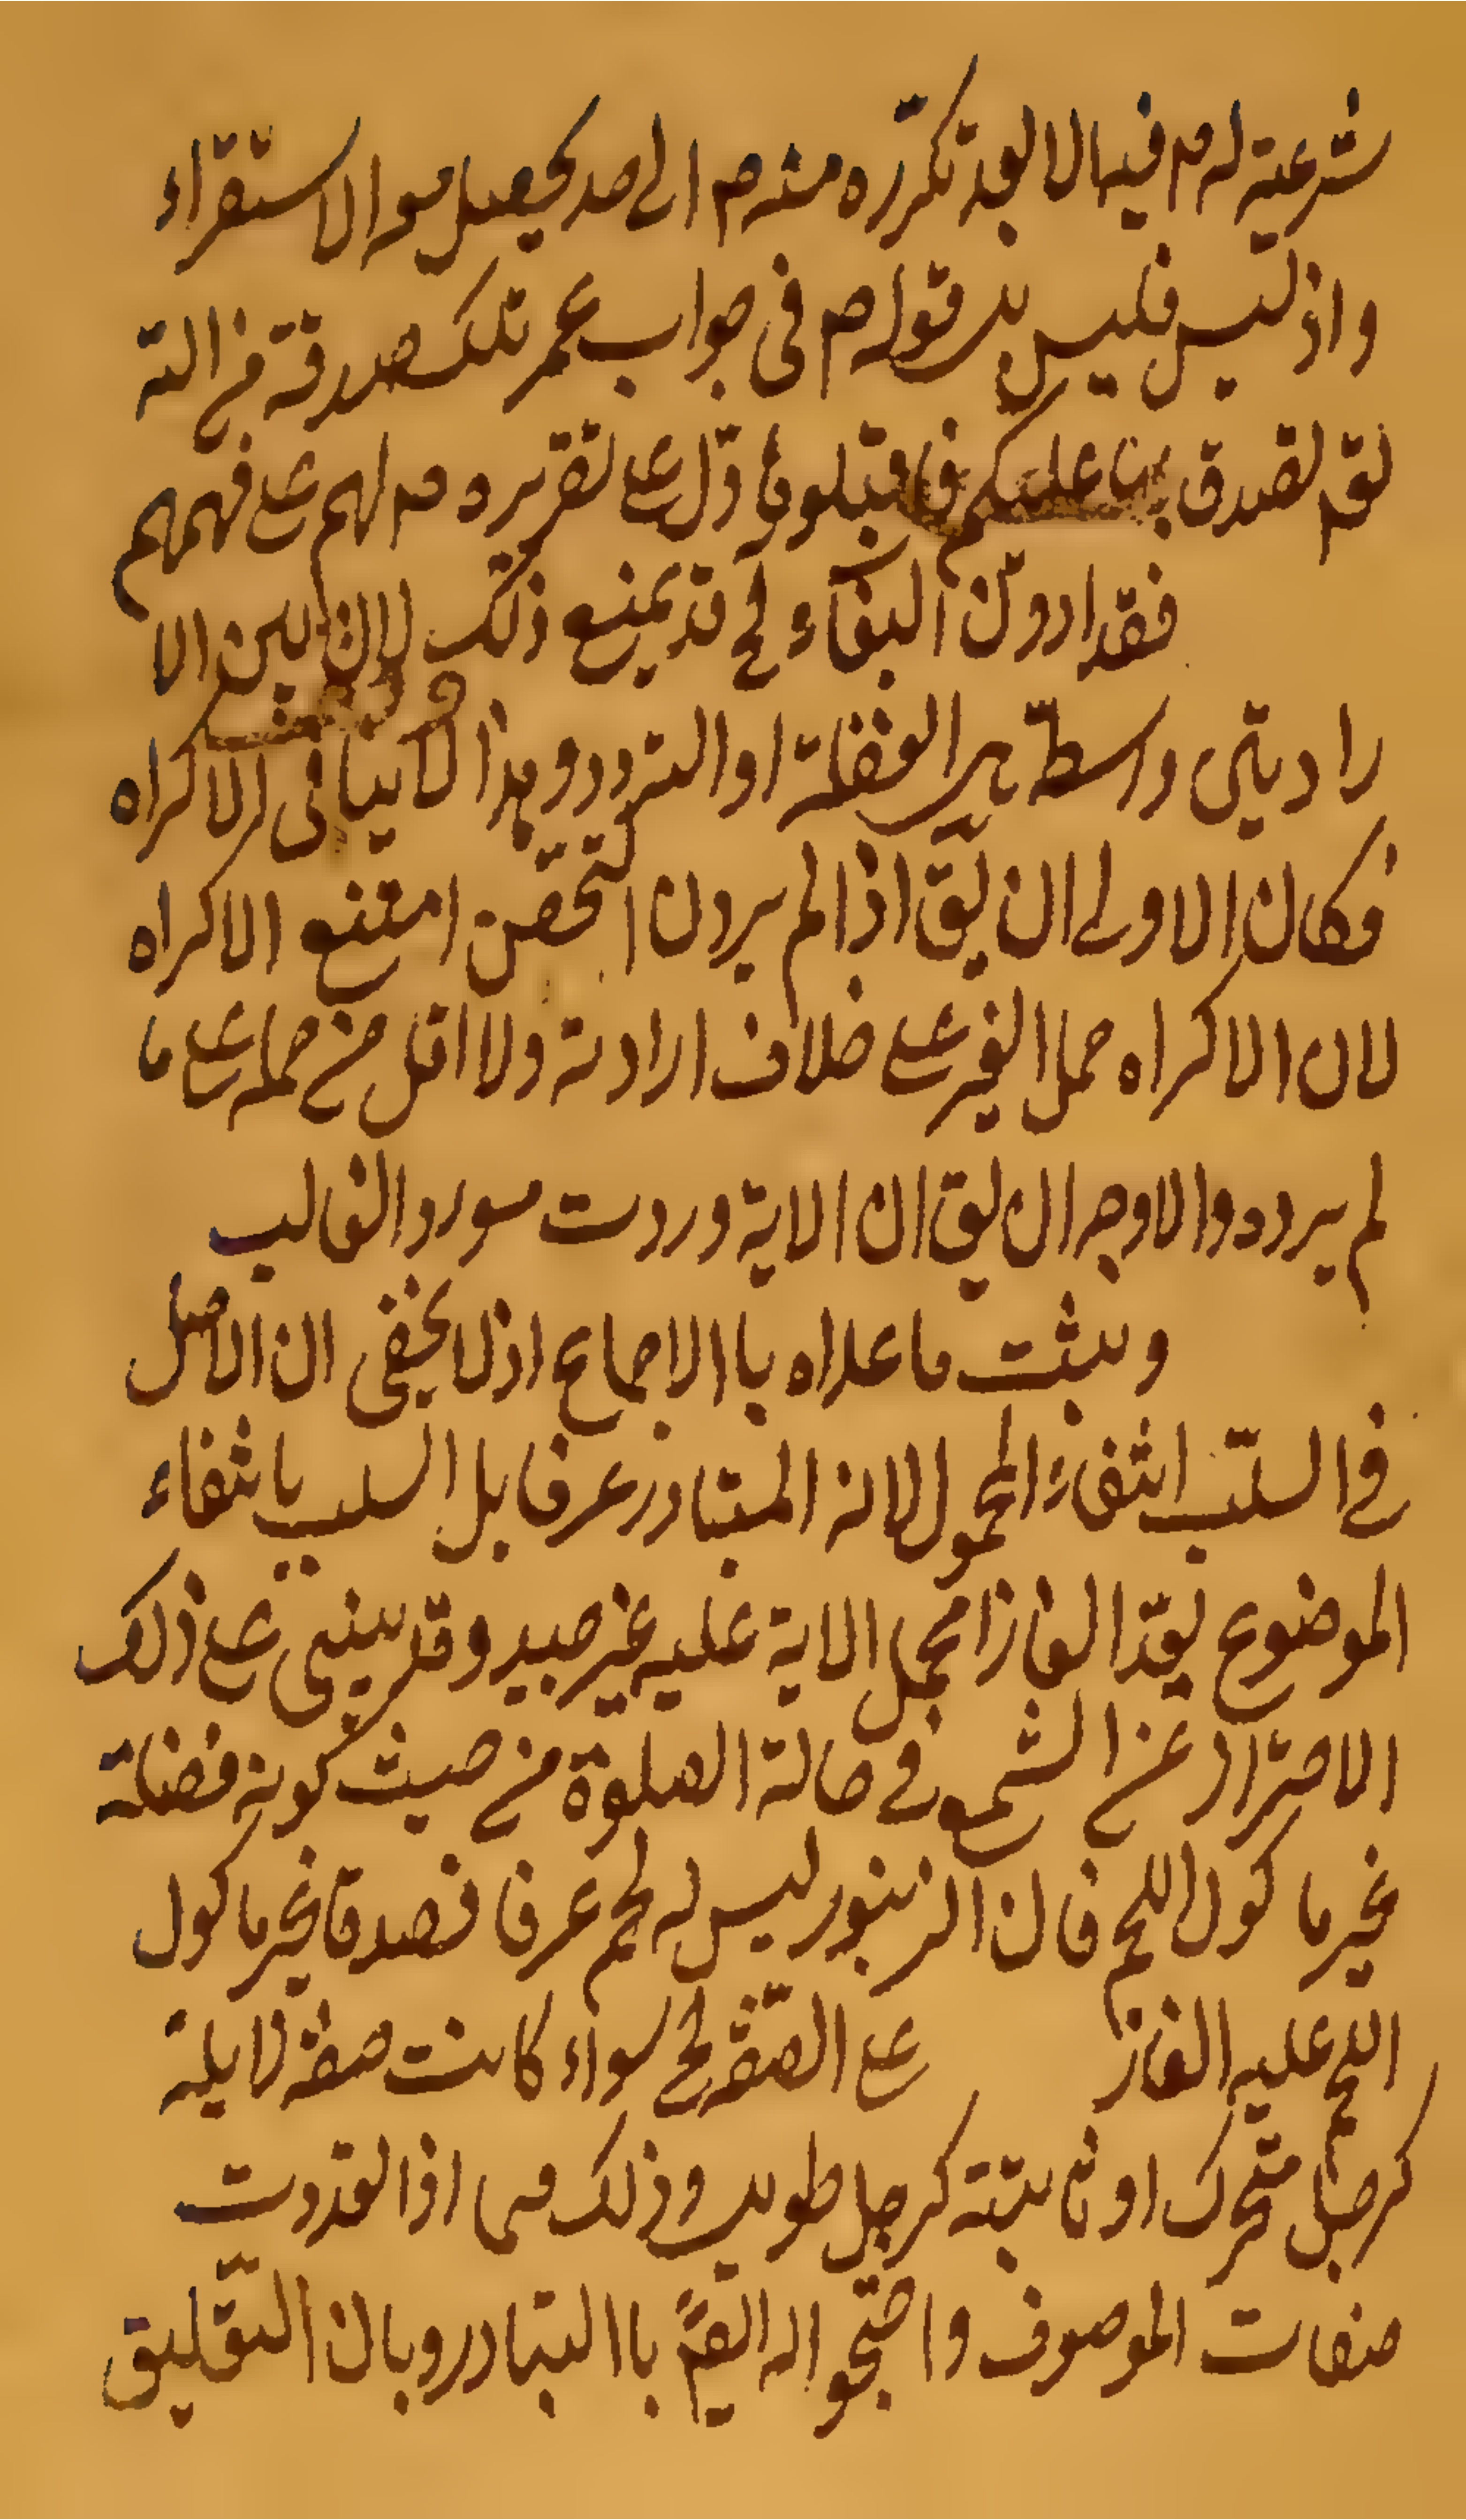 شرعية له م فيها الا بعد تكرره منه م الى حد يحصل هو الاستقراء
واذ ليس فليس بل قوله م فى جواب عمر تلك صدقة من الله
تق تصدق بها عليكم فاقبلوها دل على تقريره م لهم على فهمهم
فقد اردن البغاء لح قد يمنع ذلك لان بين الا
رادتين واسطة هى الغفلة او التردد وهذا لا ينافى الاكراه
فكان الاولى ان يق اذا لم يردن التحصن امتنع الاكراه
لان الاكراه حمل الغير على خلاف ارادته ولا اقل من حمله على ما
لم يرده والاوجه ان يق ان الاية وردت مورد الغالب
ويثبت ما عداه باالاجماع اذ لا يخفى ان الاصل
فى السلب انتفاء المحمول لانه المتبادر عرفا بل السلب بانتفاء
الموضوع يعد الغازا مجمل الاية عليه غير جيد وقد يبنى على ذلك
الاحتراز عن الشمع فى حالة الصلوة من حيث كونه فضلة
غير ماكول اللحم فان الزنبور ليس له لحم عرفا فصدق غير ماكول
اللحم عليه الغاز على الصفة لح سواء كانت صفة زايلة
كرجل متحرك او ثابتة كرجل طويل وذلك فيما اذا تعددت
صفات الموصوف واحتجوا له القيم باالتبادر وبان التعليق